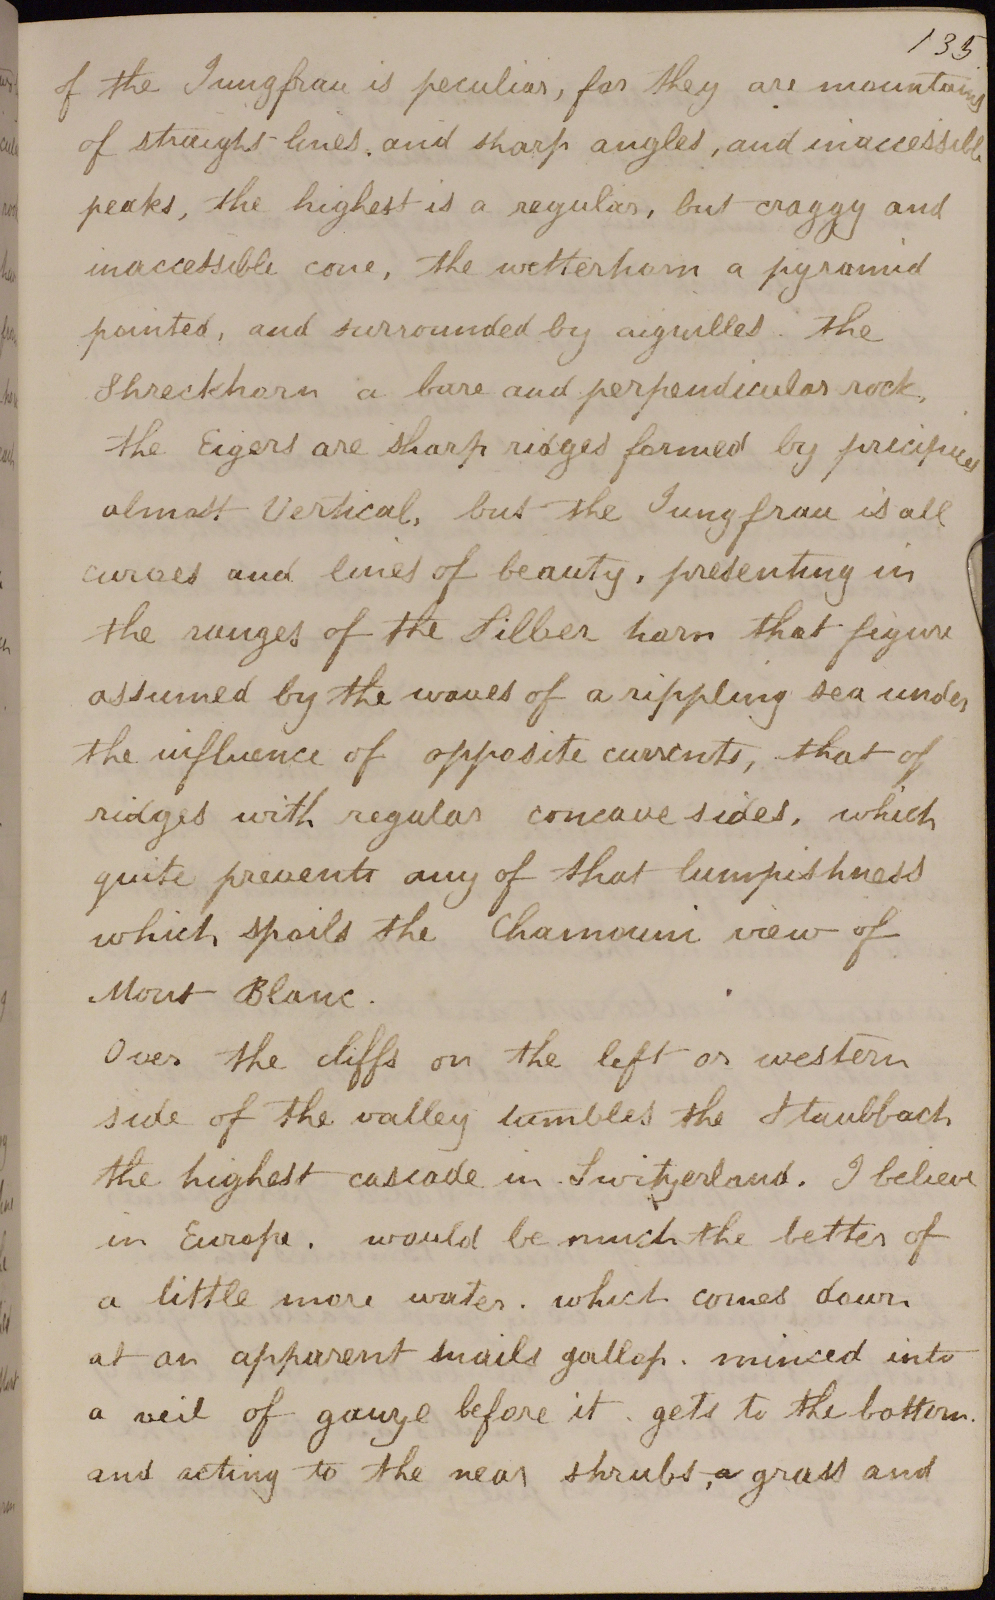 135
of the Jungfrau is peculiar, for they are mountains
of straight lines. and sharp angles, and inaccessible
peaks, the highest is a regular, but craggy and
inaccessible cone, the wetterhorn a pyramid
pointed, and surrounded by aiguilles. the
Shreckhorn a bare and perpendicular rock,
the Eigers are sharp ridges formed by precipices
almost Vertical, but the Jungfrau is all
curves and lines of beauty, presenting in
the ranges of the Silber horn that figure
assumed by the waves of a rippling sea under
the influence of opposite currents, that of
ridges with regular concave sides, which
quite prevents any of that lumpishness
which spoils the Chamouni view of
Mont Blanc.
Over the cliffs on the left or western
side of the valley tumbles the Staubbach
the highest cascade in Switzerland. I believe
in Europe. would be much the better of
a little more water. which comes down
at an apparent snails gallop. minced into
a veil of gauze before it gets to the bottom.
and acting to the near shrubs, a grass and